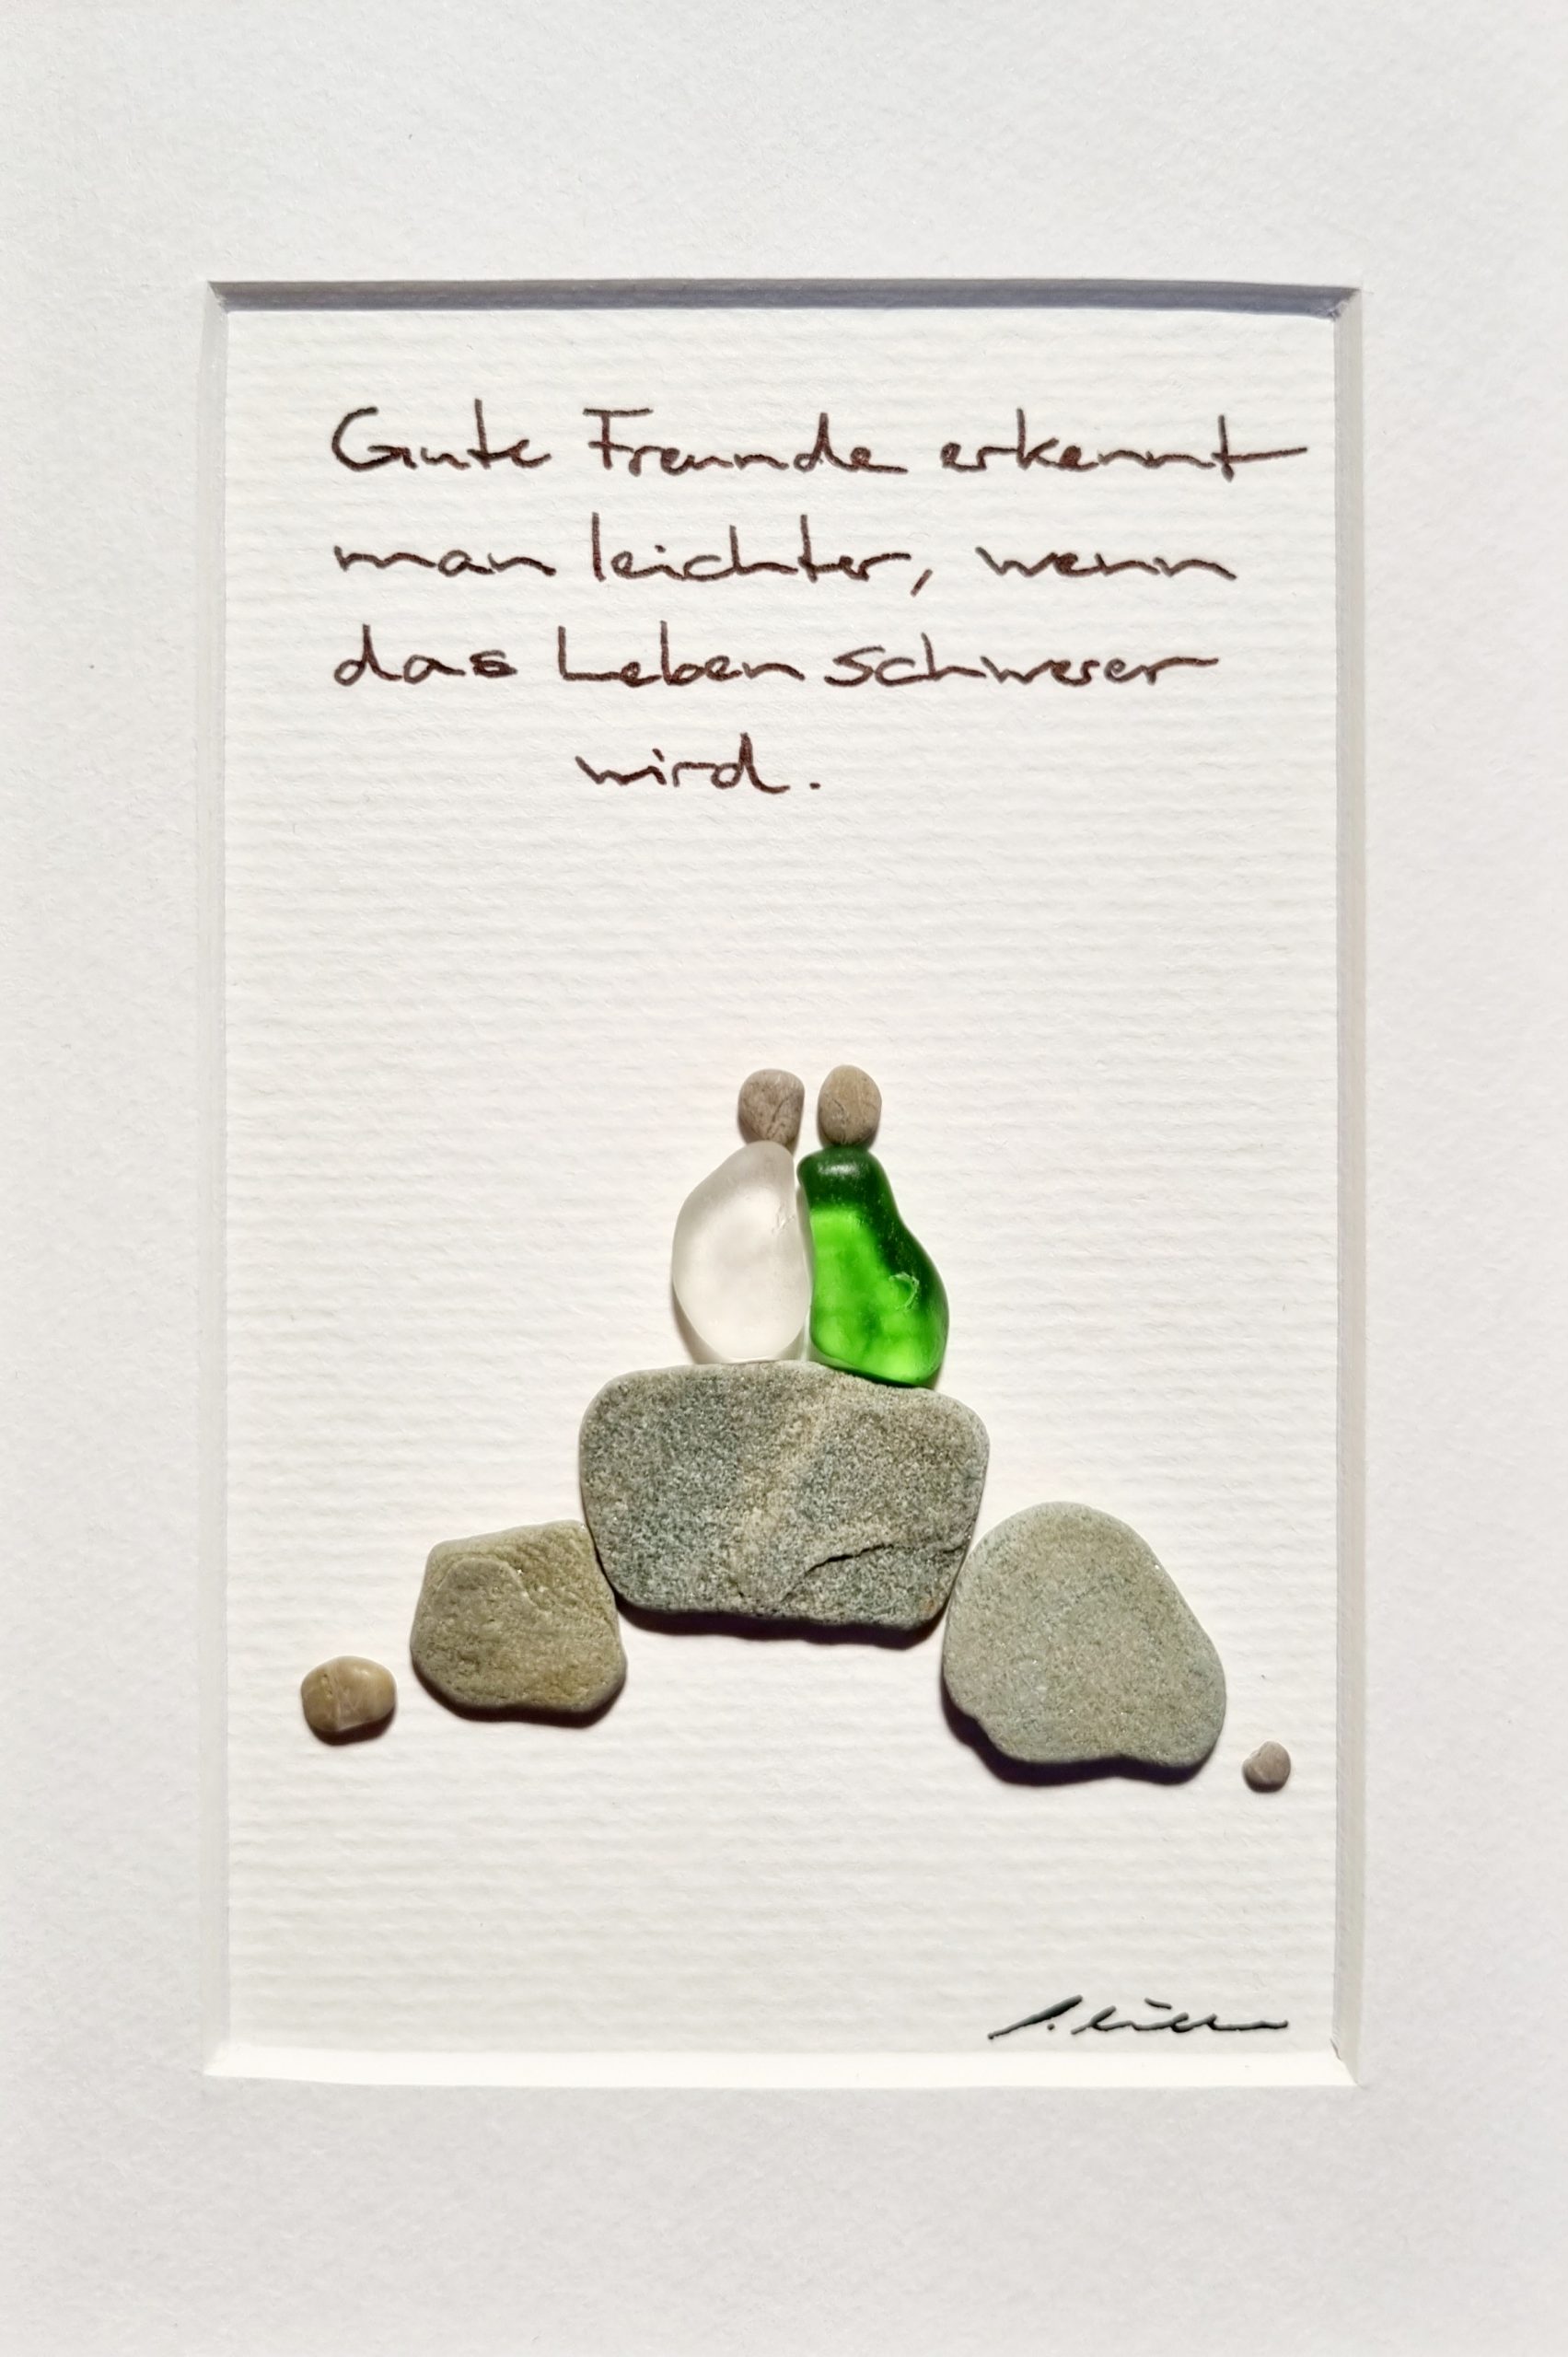 Gute Freunde erkennt
man leichter, wenn
das Leben schwerer
wird.